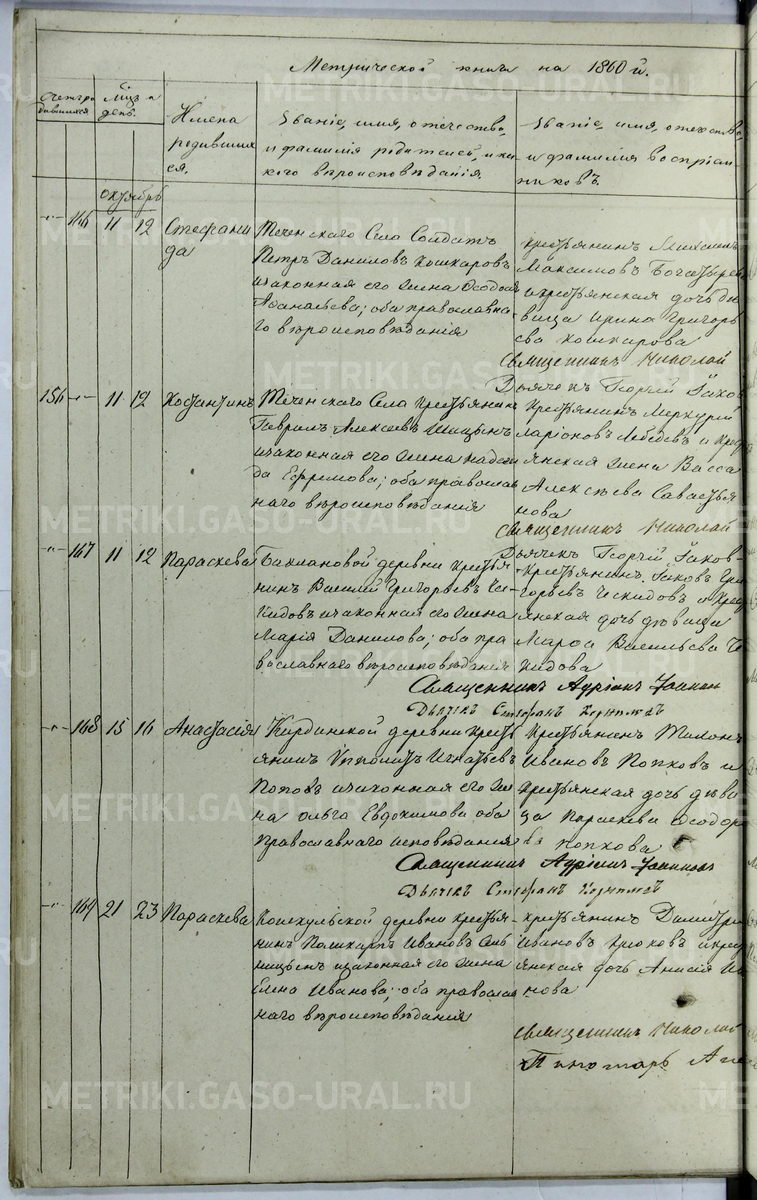 Метрической книги на 1860 й.
Счетъ родившихся
Мцъ и день.
Имена родившихся.
Званіе, имя, отчество, и фамилія родителей, и какого вѣроисповѣданія.
Званіе, имя, отчество, и фамилія воспріемниковъ.
Октябрь
166 11 12 Стефанида
Теченскаго Села Солдатъ
Петръ Даниловъ Кошкаровъ
и законная его жена Ѳеодосія
Аѳанасьева; оба православна-
го вѣроисповѣданія
крестьянинъ Михаилъ
Максимовъ Богатырев
и крестьянская дочь дѣ-
вица Ирина Григорь
ева Кошкарова
Священникъ Николай
Дьячекъ Георгій Яков
156 11 12 Костантинъ
Теченскаго Села Крестьянинъ
Гаврилъ Алексеевъ
и законная его жена Надеж
да Ефремова; оба православ
наго вѣроисповѣданія
Крестьянинъ Меркурій
ларіоновъ Лебедевъ и Крест
янская жена Васса
Алексѣева Савастья
нова
Священникъ Николай
Дьячекъ Георгій Яков
167 11 12 Параскева
Баклановой деревни Крестья
нинъ Василій Григорьевъ Чес-
кидовъ и законная его жена
Марія Данилова; оба пра
вославнаго вѣроисповѣданія
Крестьянинъ Яковъ Гри
горьевъ Ческидовъ и Крест
янская дочь дѣвица
Марѳа Васильева Че
кидова
Священникъ Адріанъ Іоанн
Дьячекъ Стефанъ
168 15 16 Анастасія
Кирдинской деревни Кресть
янинъ Ипполитъ Игнатьевъ
Поповъ и законная его же
на Ольга Евдокимова оба
православнаго исповѣданія
Крестьянинъ
Ивановъ Попковъ и
Крестьянская дочь дѣви
ца Параскева Ѳеодоро
ва Попкова
Священникъ Адріанъ Іоанновъ
Дьячекъ Стефанъ
169 21 23 Параскева
деревни крестья-
нинъ Поликарпъ Ивановъ
и законная его жена
Елена Иванова; оба православ
наго вѣроисповѣданія
Крестьянинъ Димитрі
Ивановъ Крюковъ и крест
янская дочь Анисія Ива
нова
Священникъ Николай
Пономарь Але
METRIKI.GASO-URAL.RU